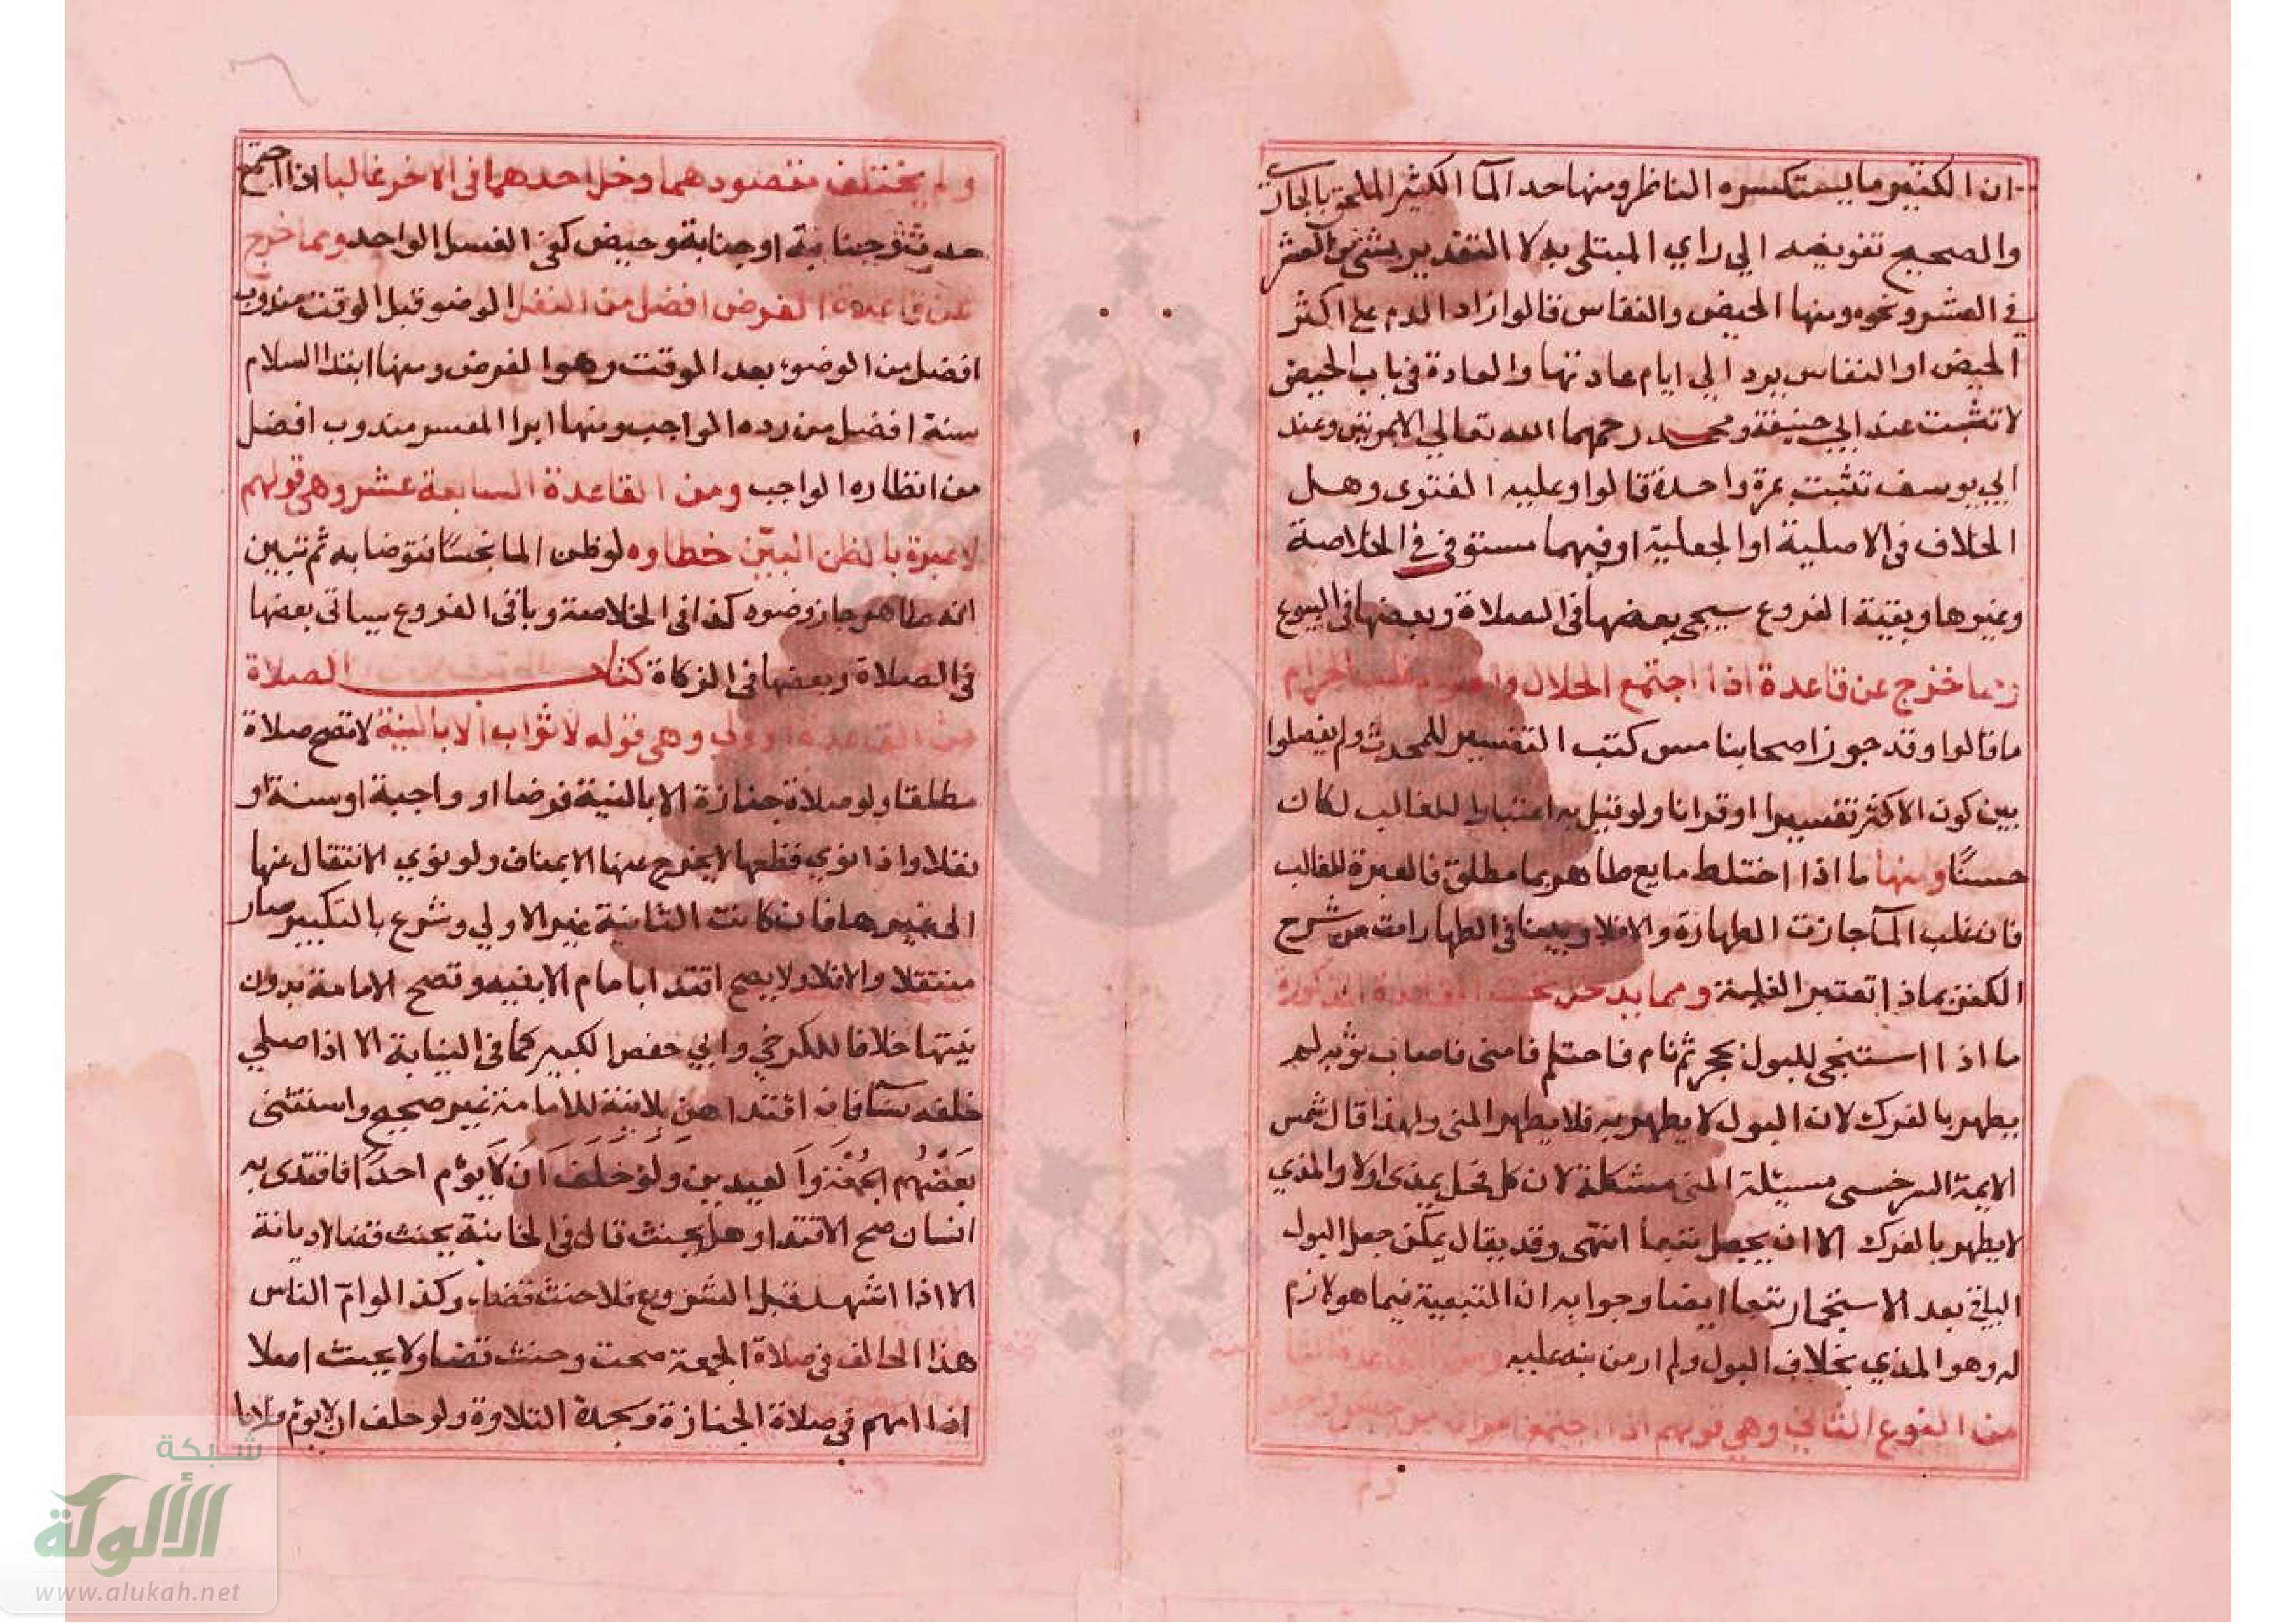 ان الكثير ما يستكسره الناظر ومنها حد المآ الكثير الملحق بالجاري
والصحيح تفويضه الي راي المبتلي به لا التقدير بشئ من العشر
في العشر ونحوه ومنها الحيض والنفاس قالوا زاد الدم علي اكثر
الحيض او النفاس يرد الي ايام عادتها والعادة في باب الحيض
لا تثبت عند ابي حنيفة ومحمد رحمهما الله تعالي الا بمرتين وعند
ابي يوسف تثبت بمرة واحدة قالوا وعليه الفتوي وهل
الخلاف في الاصلية او الجعلية او فيهما مستوفي في الخلاصة
وغيرها وبقية الفروع سيجي بعضها في الصلاة وبعضها في البيوع
ومما خرج عن قاعدة اذا اجتمع الحلال والحرام غلب الحرام
ما قالوا وقد جوز اصحابنا مس كتب التفسير للمحدث ولم يفصلوا
بين كون الاكثر تفسيرا او قرانا ولو قيل به اعتبارا للغالب لكان
حسنًا ومنها ما اذا اختلط مايع طاهر بما مطلق فالعبرة للغالب
فان غلب المآ جازت الطهارة والا فلا وبينا في الطهارات من شرح
الكنز بماذا تعتبر الغلبة ومما يدخل تحت القاعدة المذكورة
ما اذا استنجي للبول بحجر ثم نام فاحتلم فامني فاصاب ثوبه لم
يطهر بالفرك لان البول لا يطهر به فلا يطهر المني ولهذا قال شمس
الايمة السرخسي مسيلة المني مشكلة لان كل فحل يمذي اولا والمذي
لا يطهر بالفرك الا ان يجعل تبعا انتهي وقد يقال يمكن جعل البول
الباقي بعد الاستجمار تبعا ايضا وجوابه ان التبعية فيما هو لازم
له وهو المذي بخلاف البول ولم ار من نبه عليه ومن القاعدة الثامنة
من النوع الثاني وهي قولهم اذا اجتمع امران من جنس واحد
ولم يختلف مقصودهما دخل احدهما في الاخر غالبا اذا اجتمع
حدث وجنابة او جنابة وحيض كفي الغسل الواحد ومما خرج
عن قاعدة الفرض افضل من النفل الوضو قبل الوقت مندوب
افضل من الوضوء بعد الوقت وهو الفرض ومنها ابتدا السلام
سنة افضل من رده الواجب ومنها ابرا المعسر مندوب افضل
من انظاره الواجب ومن القاعدة السابعة عشر وهي قولهم
لا عبرة بالظن البيّن خطاوه لو ظن الما نجسًا فتوضا به ثم تبين
انه طاهر جاز وضوه كذا في الخلاصة وباقي الفروع سياتي بعضها
في الصلاة وبعضها في الزكاة كتاب الصلاة
من القاعدة الاولي وهي قوله لا ثواب الا بالنية لا تصح صلاة
مطلقا ولو صلاة جنازة الا بالنية فرضا او واجبة او سنة او
نفلا واذا نوي قطعها لا يخرج عنها الا بمناف ولو نوي الانتقال عنها
الي غيرها فان كانت الثانية غير الاولي وشرع بالتكبير صار
منتقلا والا فلا ولا يصح اقتدا بامام الا بنيه وتصح الامامة بدون
نيتها خلافا للكرخي وابي حفص الكبير كما في البناية الا اذا صلي
خلفه نسآ فان اقتداهن بلا نية للامامة غير صحيح واستثني
بعضهم الجمعة والعيدين ولو حلف ان لا يوم احدًا فاقتدي به
انسان صح الاقتدا وهل يحنث قال في الخانية يحنث قضا لا ديانة
الا اذا اشهد قبل الشروع فلا حنث قضاء وكذا لو امّ الناس
هذا الحالف في صلاة الجمعة صحت وحنث قضا ولا يحنث اصلا
اذا امهم في صلاة الجنازة وسجدة التلاوة ولو حلف ان لا يوم فلانا
شبكة
الألوكة
www.alukah.net